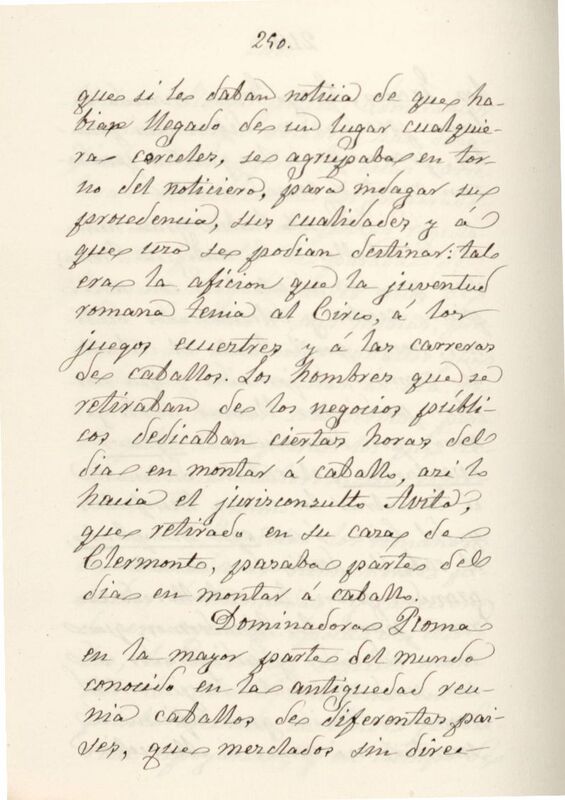 250.
que si les daban noticia de que ha-
bian llegado de un lugar cualquie-
ra corceles, se agrupaba en tor-
no del noticiero, para indagar su
procedencia, sus cualidades y á
que uso se podian destinar: tal
era la aficion que la juventud
romana tenia al Circo, á los
juegos ecuestres y á las carreras
de caballos. Los hombres que se
retiraban de los negocios públi-
cos dedicaban ciertas horas del
dia en montar á caballo, asi lo
hacia el jurisconsulto Avito,
que retirado en su casa de
Clermont, pasaba parte del
dia en montar á caballo.
Dominadora Roma
en la mayor parte del mundo
conocido en la antiguedad reu-
nia caballos de diferentes pai-
ses, que mezclados sin direc-